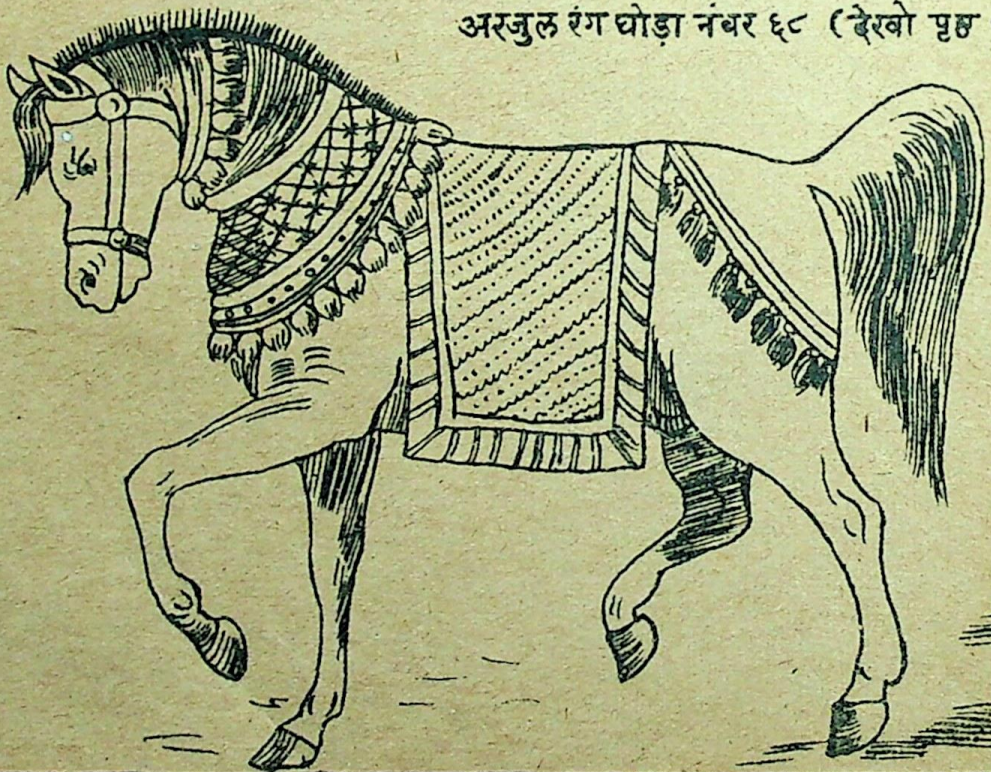 अरजुल रंग घोड़ा नंबर ६८ (देखो पृष्ठ